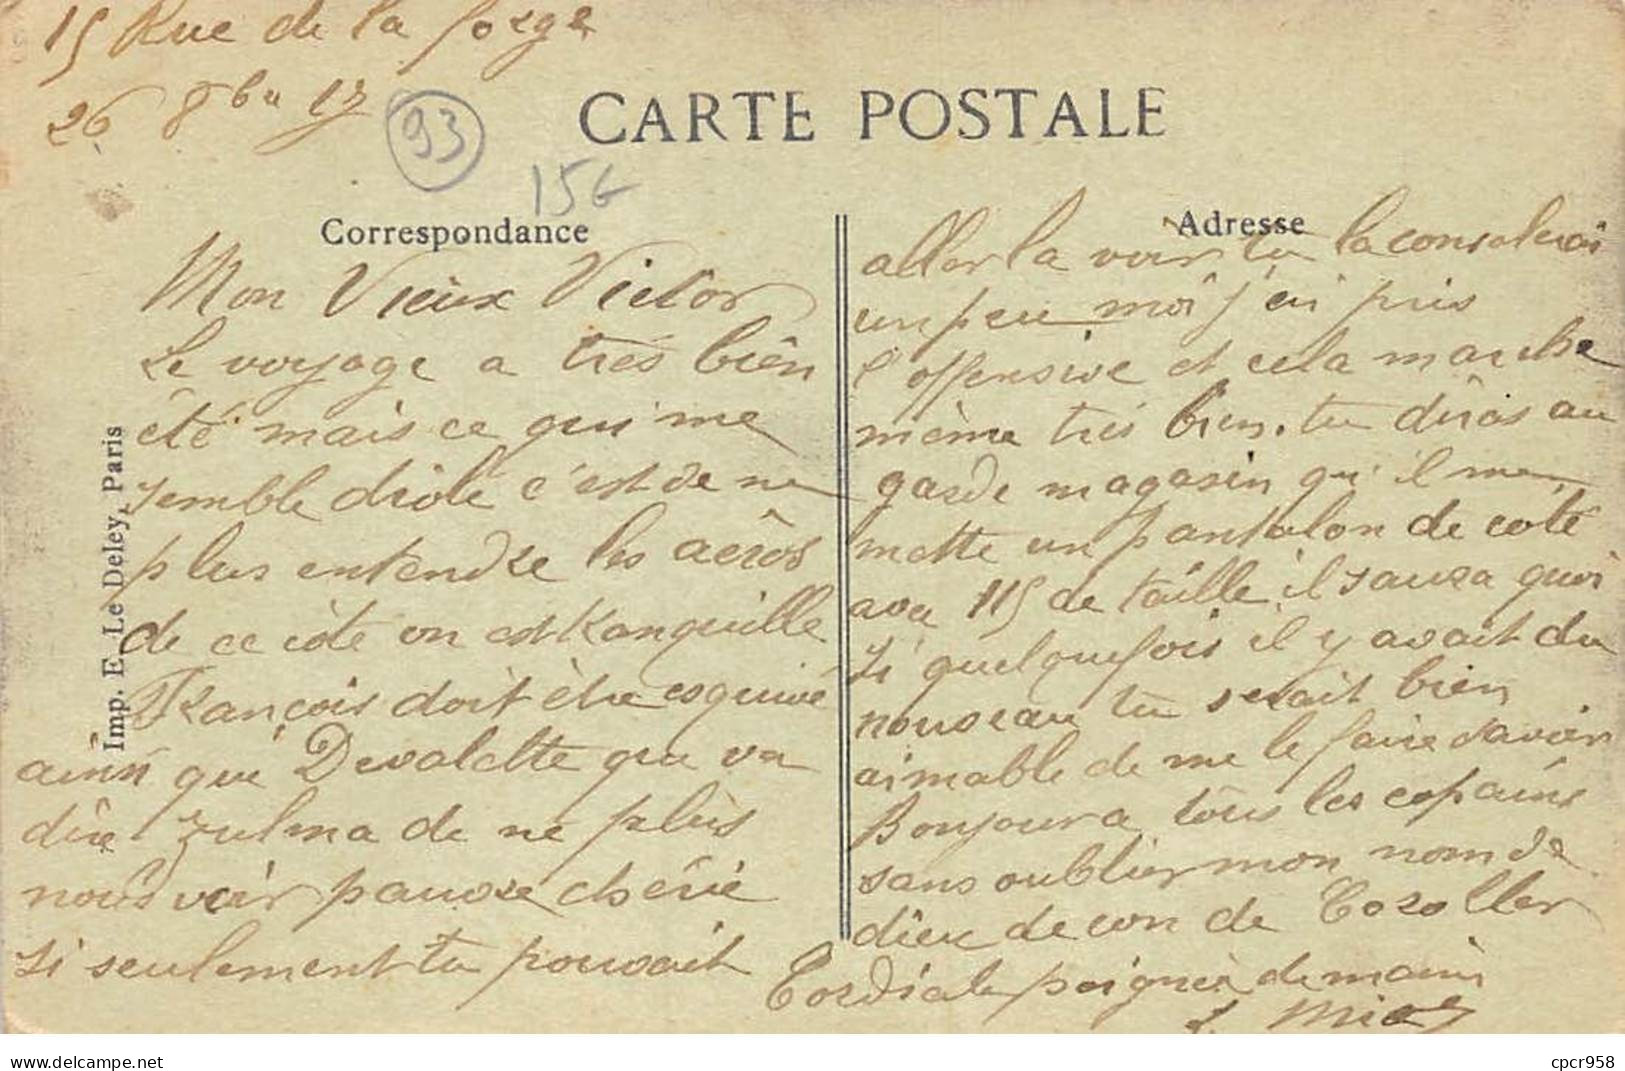 15 Rue de la forge
26 8bre 17
93
15G
CARTE POSTALE
Correspondance
Adresse
Imp. E. Le Deley, Paris
Mon Vieux Victor
Le voyage a très bien
été mais ce qui me
semble drôle c'est de ne
plus entendre les aéros
de ce côté on est tranquille
François doit être esquivé
ainsi que Devalette que va
dire Zulma de ne plus
nous voir pauvre chérie
si seulement tu pouvait
aller la voir tu la consolerais
un peu moi j'ai pris
l'offensive et cela marche
même très bien. tu diras au
garde magasin qu'il me
mette un pantalon de coté
avec 115 de taille il saura quoi
si quelquefois il y avait du
nouveau tu serait bien
aimable de me le faire savoir
Bonjour a tous les copains
sans oublier mon nom de
dieu de con de Coroller
Cordiale poignée de mains
cpcr958